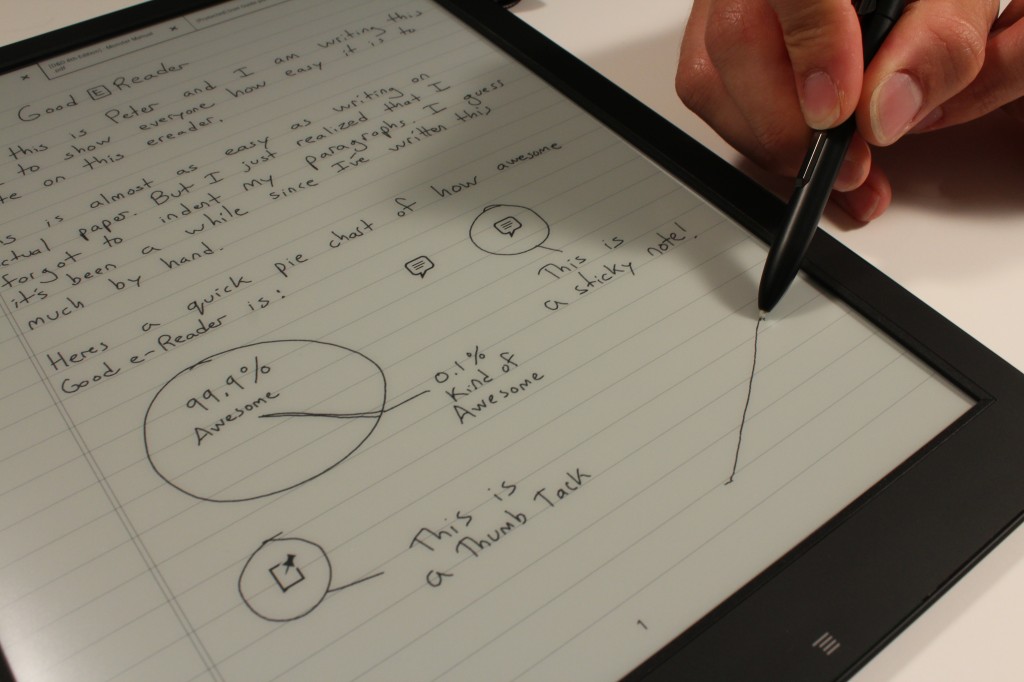 Good E Reader
this is Peter and I am writing this
to show everyone how easy it is to
on this ereader.
is almost as easy as writing on
paper. But I just realized that I
forgot to indent my paragraphs. I guess
it's been a while since I've written this
much by hand.
Heres a quick pie chart of how awesome
Good e-Reader is:
This is
a sticky note!
99.9%
Awesome
0.1%
Kind of
Awesome
This is
a Thumb Tack
1